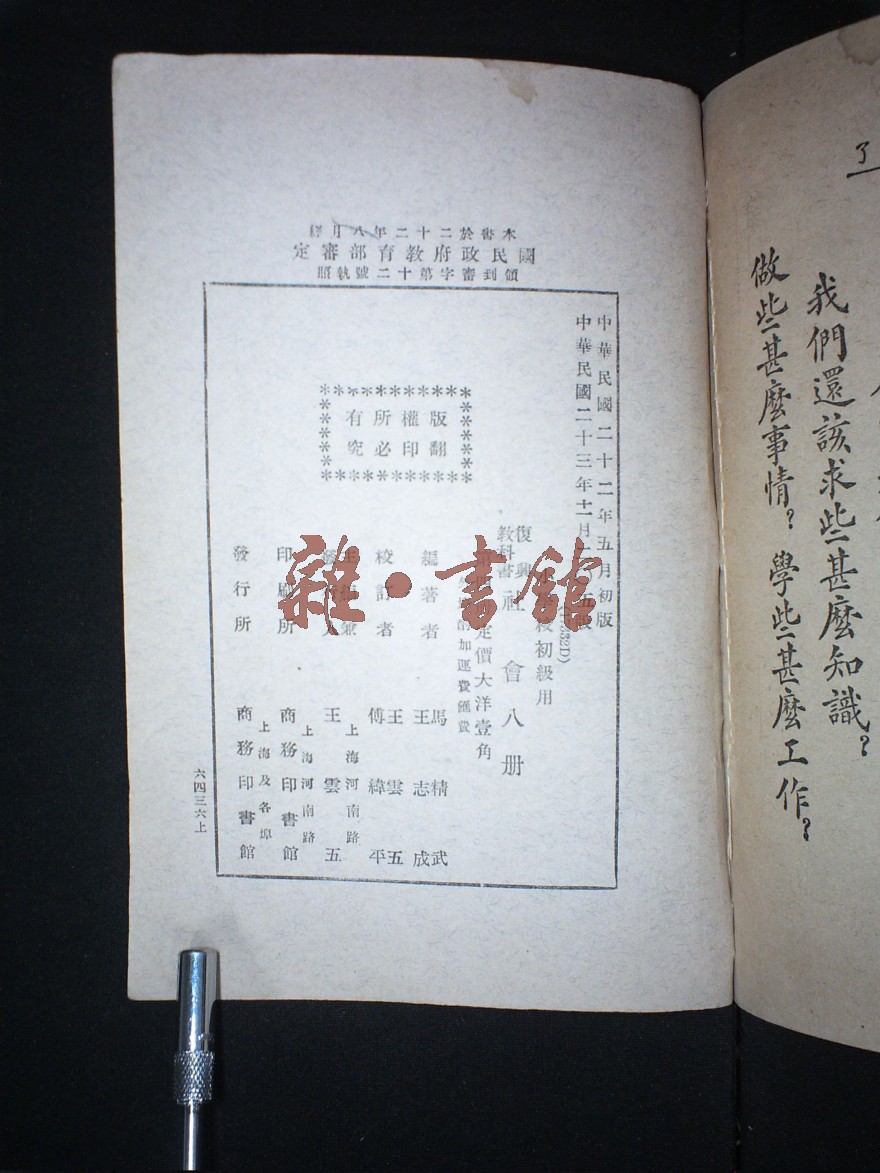 本書於二十二年八月經
國民政府教育部審定
領到審字第十二號執照
中華民國二十二年五月初版
中華民國二十三年十二月
校初級用
復興
教科書
社會八册
定價大洋壹角
加運費匯費
版權所有
翻印必究
編著者
馬精武
王志成
校訂者
王雲五
傅緯平
王雲五
上海河南路
印刷所
商務印書館
上海河南路
發行所
商務印書館
上海及各埠
六四三六上
雜·書館
了
我們還該求些甚麼知識?
做些甚麼事情?學些甚麼工作?